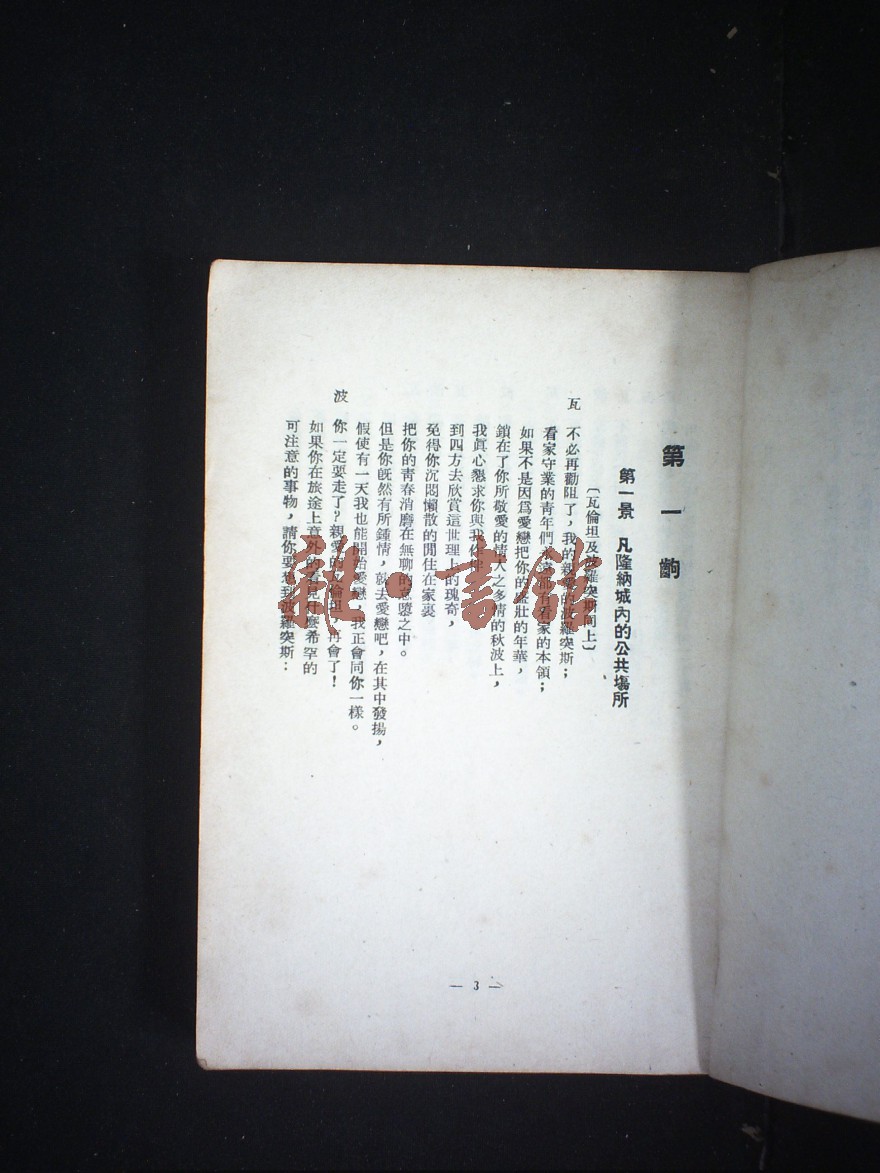 第一齣
第一景 凡隆納城內的公共塲所
〔瓦倫坦及波羅突斯同上〕
瓦 不必再勸阻了，我的親愛的波羅突斯；
看家守業的青年們 看家的本領；
如果不是因爲愛戀把你的 壯的年華，
鎖在了你所敬愛的情人之多情的秋波上，
我眞心懇求你與我作伴
到四方去欣賞這世理上的瑰奇，
免得你沉悶懶散的閒住在家裏
把你的青春消磨在無聊的怠墮之中。
但是你旣然有所鍾情，就去愛戀吧，在其中發揚，
假使有一天我也能開始愛戀，我正會同你一樣。
波 你一定要走了？親愛的瓦倫坦，再會了！
如果你在旅途上意外的看見什麼希罕的
可注意的事物，請你要想到波羅突斯：
— 3 —
雜·書館